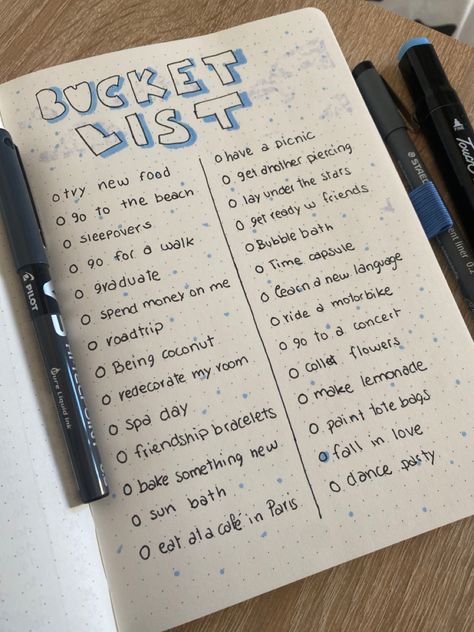 BUCKET
LIST
try new food
go to the beach
sleepovers
go for a walk
graduate
spend money on me
roadtrip
Being coconut
redecorate my room
spa day
friendship bracelets
bake something new
sun bath
eat at a café in Paris
have a picnic
get another piercing
lay under the stars
get ready w friends
Bubble bath
Time capsule
learn a new language
ride a motorbike
go to a concert
collet flowers
make lemonade
paint tote bags
fall in love
dance party
PILOT
Pure Liquid Ink